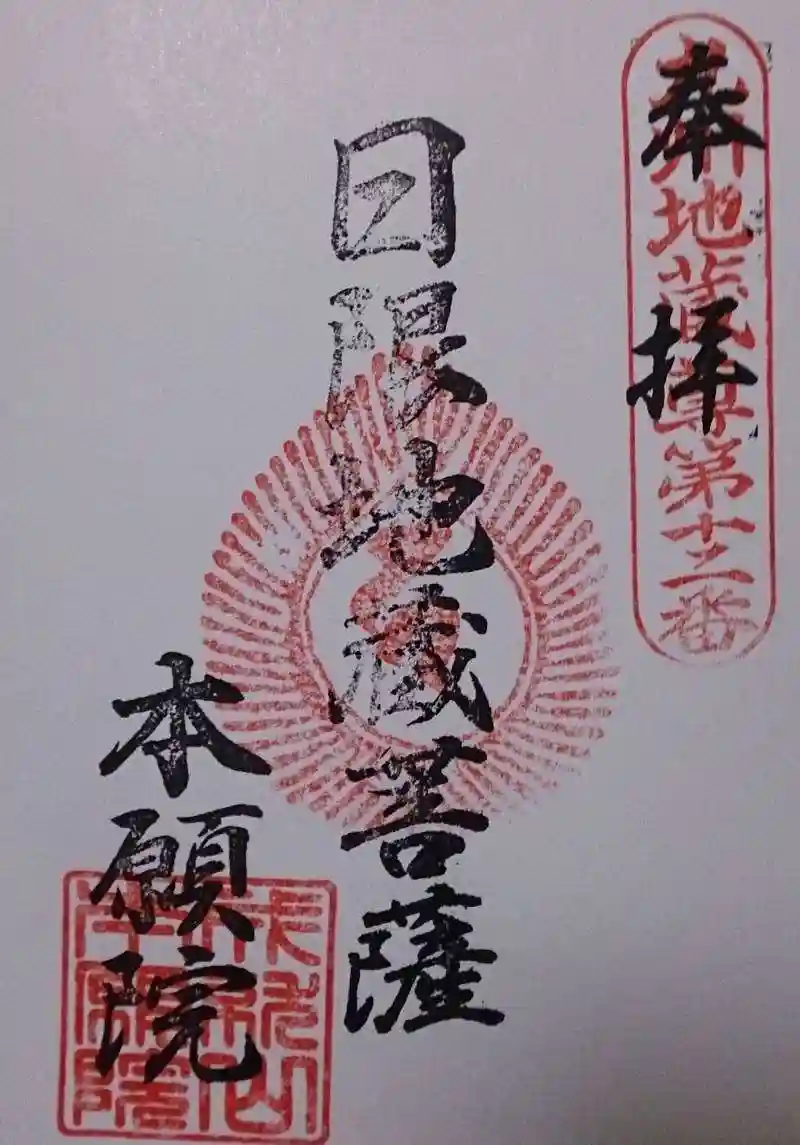 奉拝
地蔵尊第十二番
日限地蔵菩薩
本願院